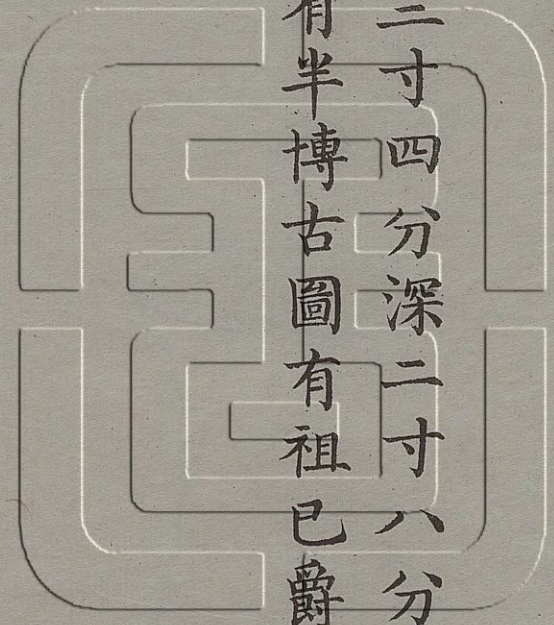 二寸四分深二寸八分
有半博古圖有祖已爵